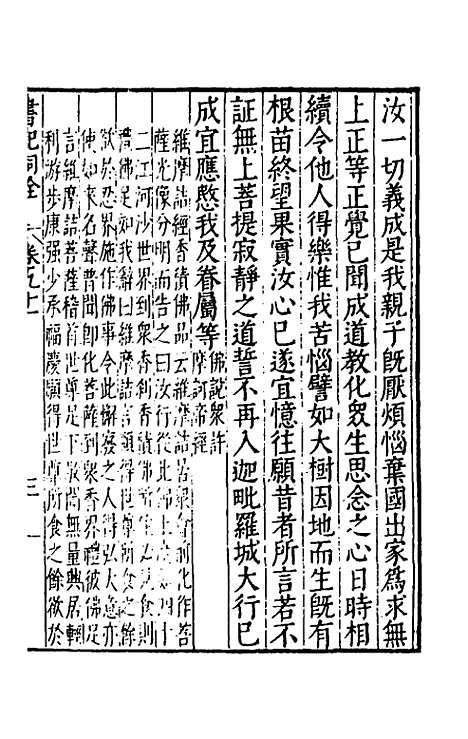 汝一切義成是我親子旣厭煩惱棄國出家爲求無
上正等正覺已聞成道教化衆生思念之心日時相
續令他人得樂惟我苦惱譬如大樹因地而生旣有
根苗終望果實汝心已遂宜憶往願昔者所言若不
証無上菩提寂靜之道誓不再入迦毗羅城大行已
成宜應愍我及眷屬等佛說衆許
摩訶帝經
維摩詰經香積佛品云維摩詰居衆會前化作菩
薩光像分明而告之曰汝行從此佛上方度四十
二江河沙世界到衆香刹香積佛所與食則
禮佛足如我辭曰維摩詰言願得世尊所食之餘
欲於忍界施作佛事令此懈廢之人得弘大意亦
使如來名聲普聞卽化菩薩到衆香界禮彼佛足
言維摩詰菩薩稽首世尊足下敬問無量興居輕
利游步康强少承福慶願得世尊所食之餘欲於
書記洞詮 卷五十 三